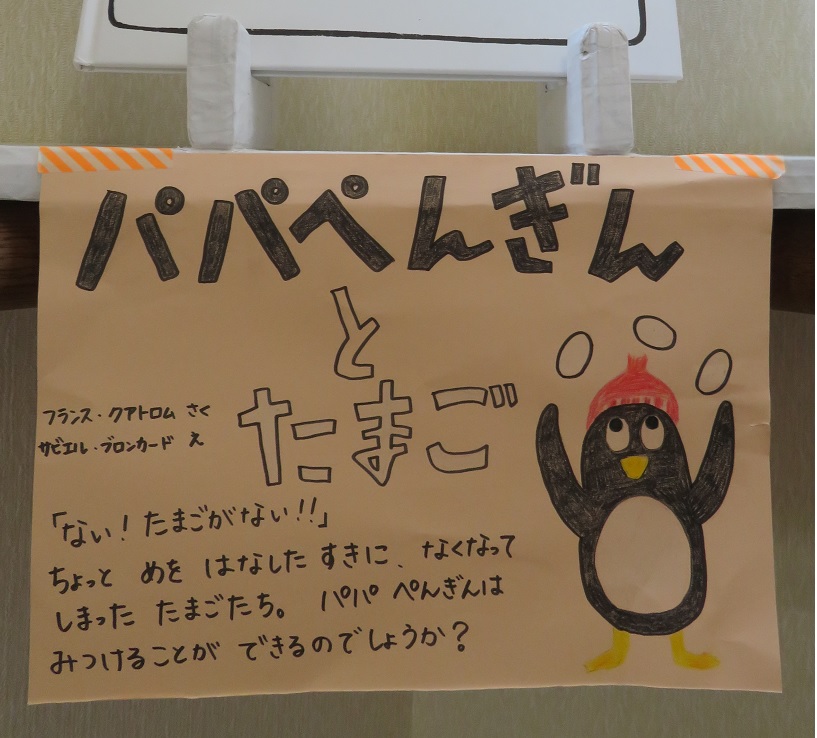 パパぺんぎん
と
たまご
フランス・クアトロム さく
サビエル・ブロンカード え
「ない！たまごがない!!」
ちょっと めを はなした すきに、なくなって
しまった たまごたち。 パパ ぺんぎんは
みつけることが できるのでしょうか？